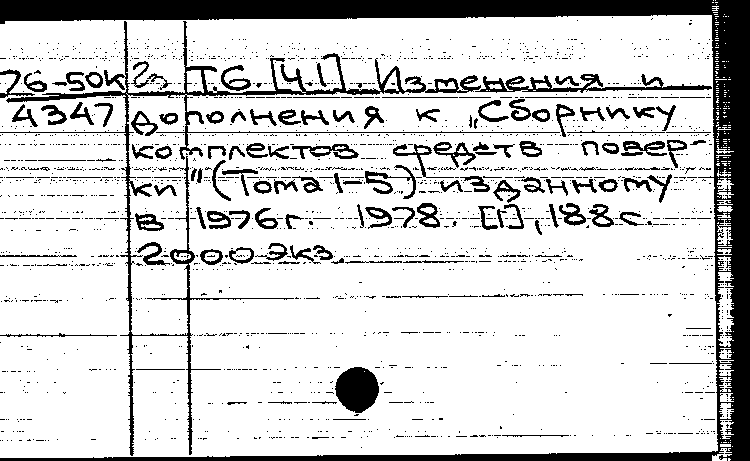 76-50к Т.6. [Ч.1]. Изменения и
4347 дополнения к „Сборнику
комплектов средств повер-
ки" (Тома 1-5) изданному
в 1976г. 1978. [1], 188с.
2000 экз.